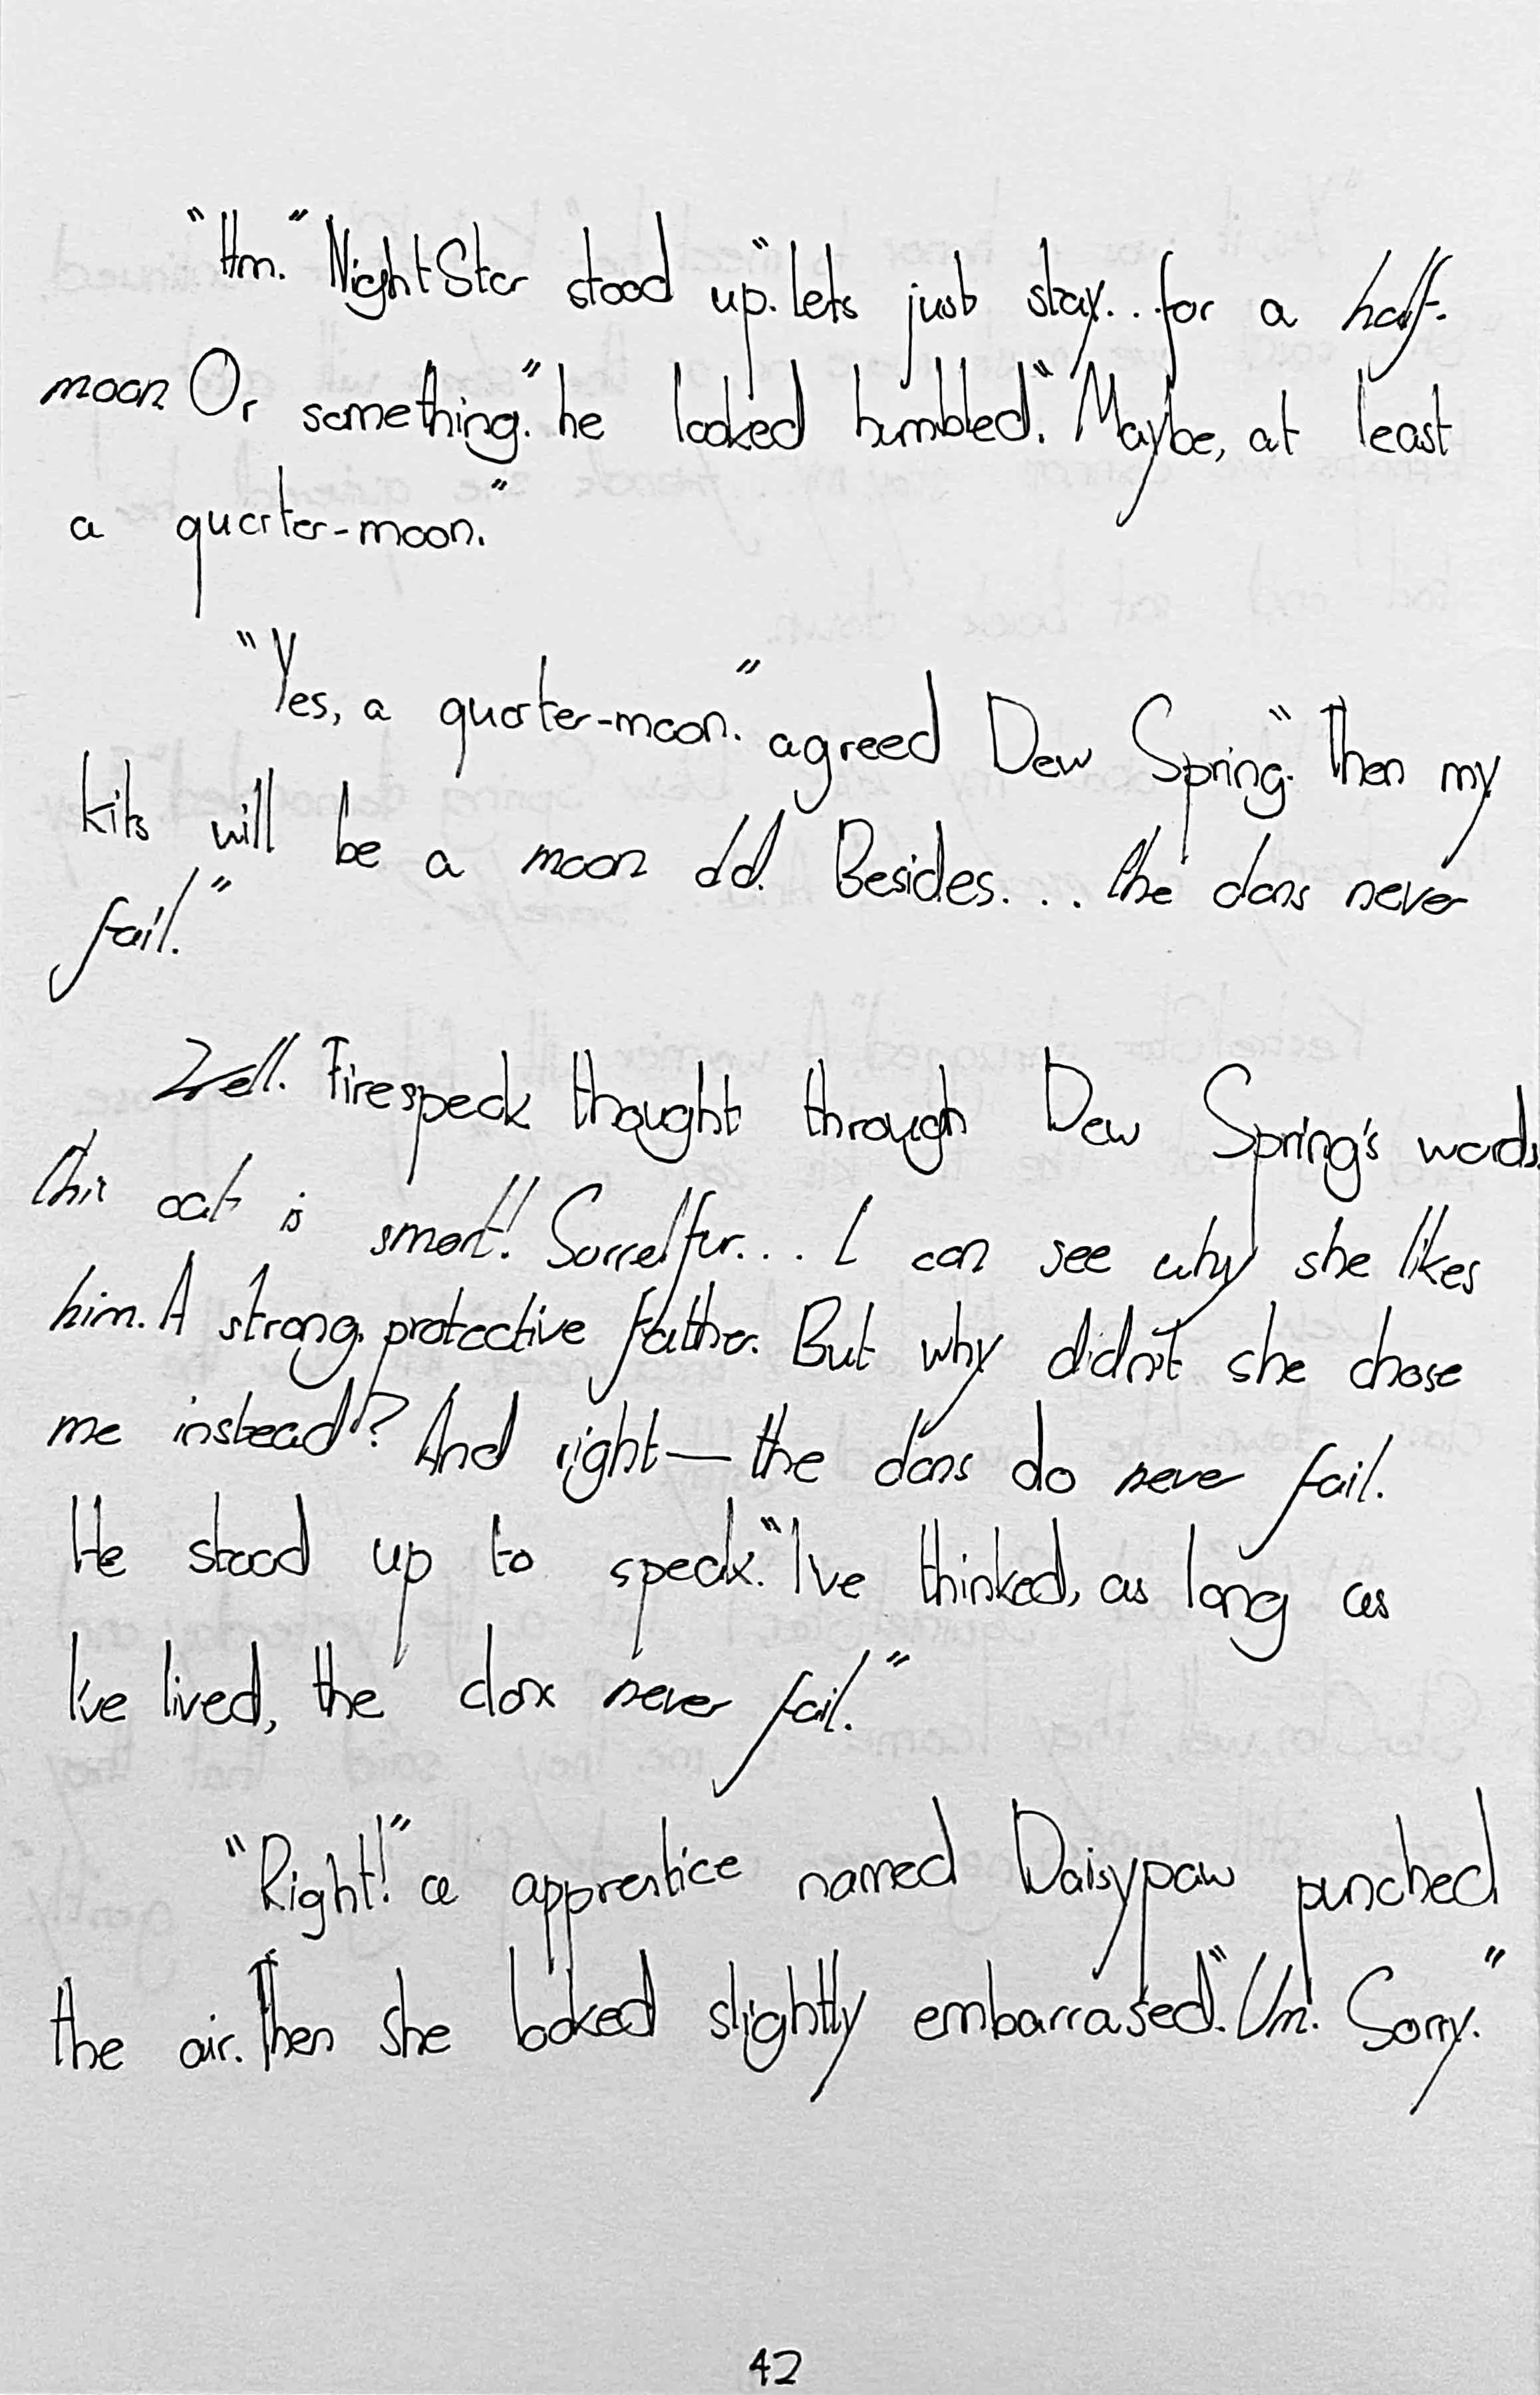 "Hm." NightStar stood up. "lets just stay... for a half-
moon Or something." he looked humbled. "Maybe, at least
a quarter-moon."
"Yes, a quarter-moon." agreed Dew Spring. "Then my
kits will be a moon old. Besides.... the clans never
fail."
Well. Firespeck thought through Dew Spring's words.
this cat is smart! Sorrelfur... I can see why she likes
him. A strong, protective father. But why didn't she chose
me instead? And right—the clans do never fail.
He stood up to speak. "I've thinked, as long as
I've lived, the clans never fail."
"Right!" a apprentice named Daisypaw punched
the air. Then she looked slightly embarrased. "Um. Sorry."
42